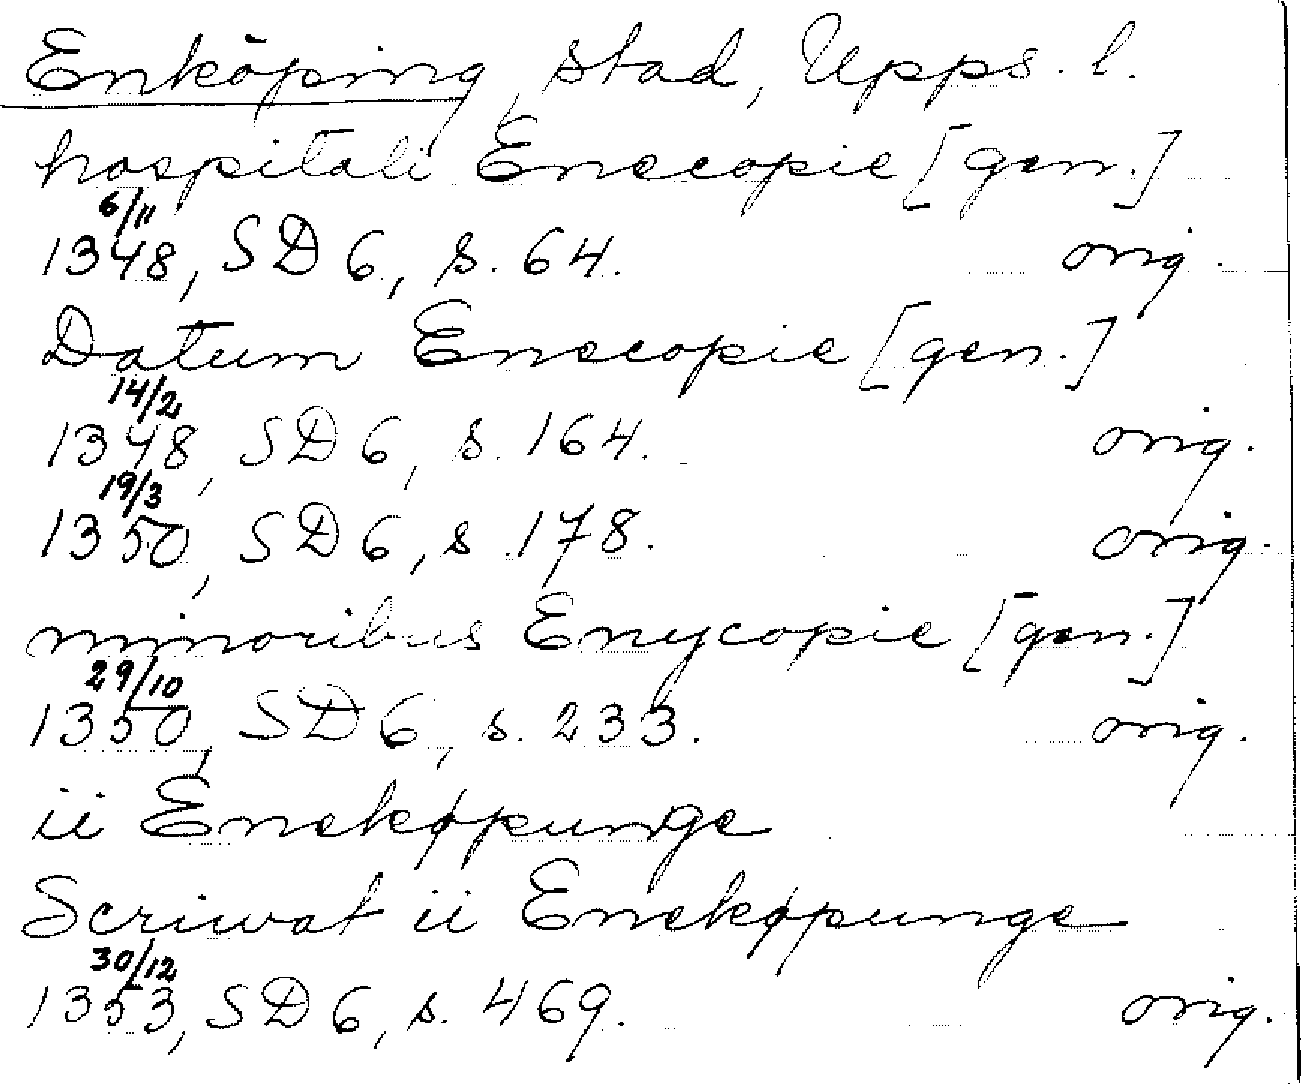 Enköping, stad, Upps. l.
hospitali Enecopie [gen.]
6/11
1348, SD 6, s. 64. orig.
Datum Enecopie [gen.]
14/2
1348, SD 6, s. 164. orig.
19/3
1350, SD 6, s. 178. orig.
minoribus Enycopie [gen.]
29/10
1350, SD 6, s. 233. orig.
ii Enekøpunge
Scriwat ii Enekøpunge
30/12
1353, SD 6, s. 469. orig.